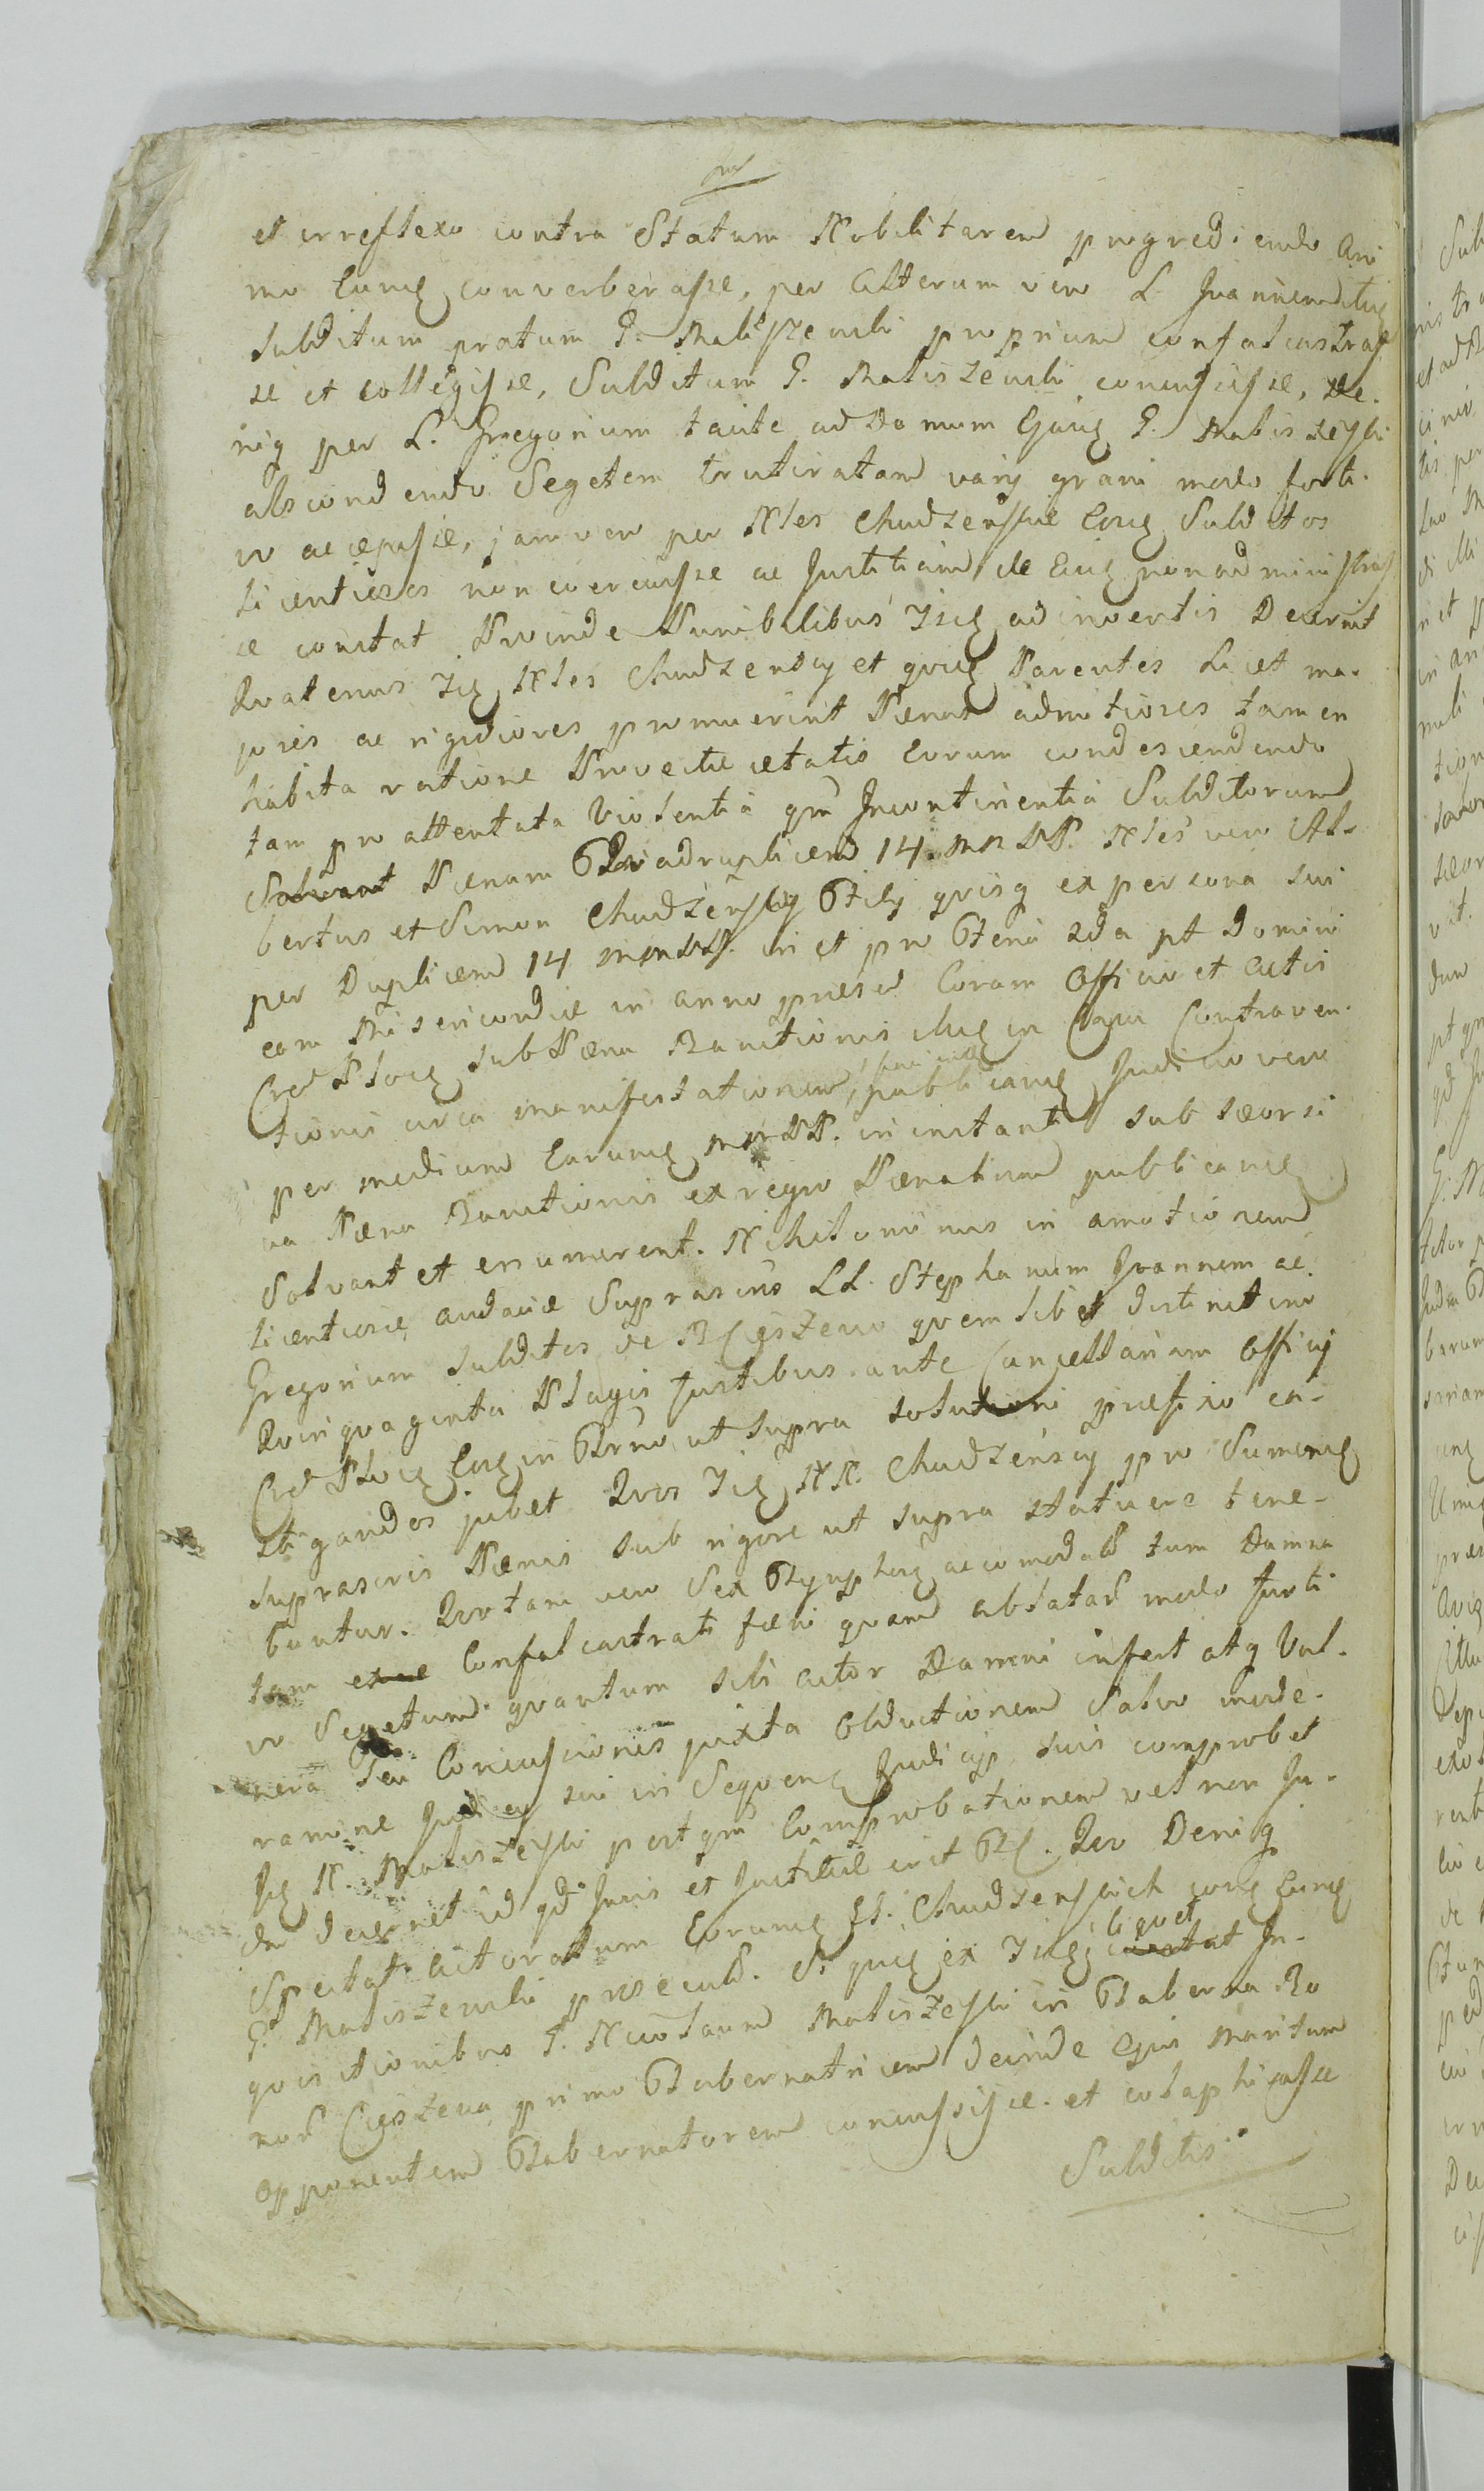 et irreflexo contra Statum Nobilitarem progrediendo ani
mo Eunq converberasse, per alterum vero L. Joannem itiq
Subditum pratum G. Maliszewski proprium confalcastras
se et collegisse, Subditum G. Maliszewski concussisse, De-
niq per L. Gregorium tacite ad Domum Ejusq G. Maliszewski
abscondendo Segetem trituratam varij grani modo furti-
vo accepisse, jam vero per Nles Chudzenskie Eosq Subditos
licentiosos non coercuisse ac Justitiam de Eisq non administras
se constat. Proinde Punibilibus Isq adinventis Decernit
Quatenus Iiq Nles Chudzenscy et quiq Parentes licet ma-
jores ac rigidiores promuerint Pœnas admotiores tamen
habita ratione Provectæ ætatis Eorum condescendendo
tam pro attentata Violentia qm Incontinentia Subditorum
Solvant Pœnam Quadruplicem 14. MPP. Nles vero Al-
bertus et Simon Chudzenscy Filij quisq ex persona sui
per Duplicem 14 MPP. in et pro Feria 2da pt Domini
cam Misericordiæ in anno præsen Coram Officio et Actis
Cren Plocq sub Pœna Bannitionis illiq in Casu Contraven-
tionis circa manifestationem, publicanq Judicio vero
per medium Earunq MPP. in instanti sub sæorsi
va Pœna Bannitionis ex regro Pœnalium publicanq
Solvant et ennumerent. Nihilominus in amotionem
licentiosæ audaciæ Suprascris LL. Stephanum Joannem ac
Gregorium subditos de Cieszewo quemlibet distinctim
Quinquaginta Plagis fustibus ante Cancellariam Officij
Cren Plocq Eosq in Trno ut supra solutioni præfixo ca-
stigandos jubet Quos Iiq NN. Chudzenscy pro Sumenq
suprascris Pœnis sub rigore ut supra statuere tene-
buntur. Quotam vero Sex Tynphorq accomodatt tum Damna
tam Confalcastrati fæni quam ablatar modo furti
vo Segetum quantum sibi actor Damni infert atq Vul-
nera seu Concussionis juxta Obductionem Salvo mode-
ramine Judicij sui in Sequenq Judicijs suis comprobet
Iiq N. Maliszewski post qm Comprobationem vel non Ju-
dm decernet id qd Juris et Justitiæ erit. Quo Deniq
Spectat Actoratum Eorunq GG. Chudzenskich conq Eunq
G. Maliszewski prosecutt. Si quiq ex Isq liquet In-
quisitionibus G. Nicolaum Maliszewski in Taberna Bo
nor Cieszewa primo Tabernatricem deinde Ejus Maritum
opponentem Tabernatorem concussisse et colaphisasse
Subditis